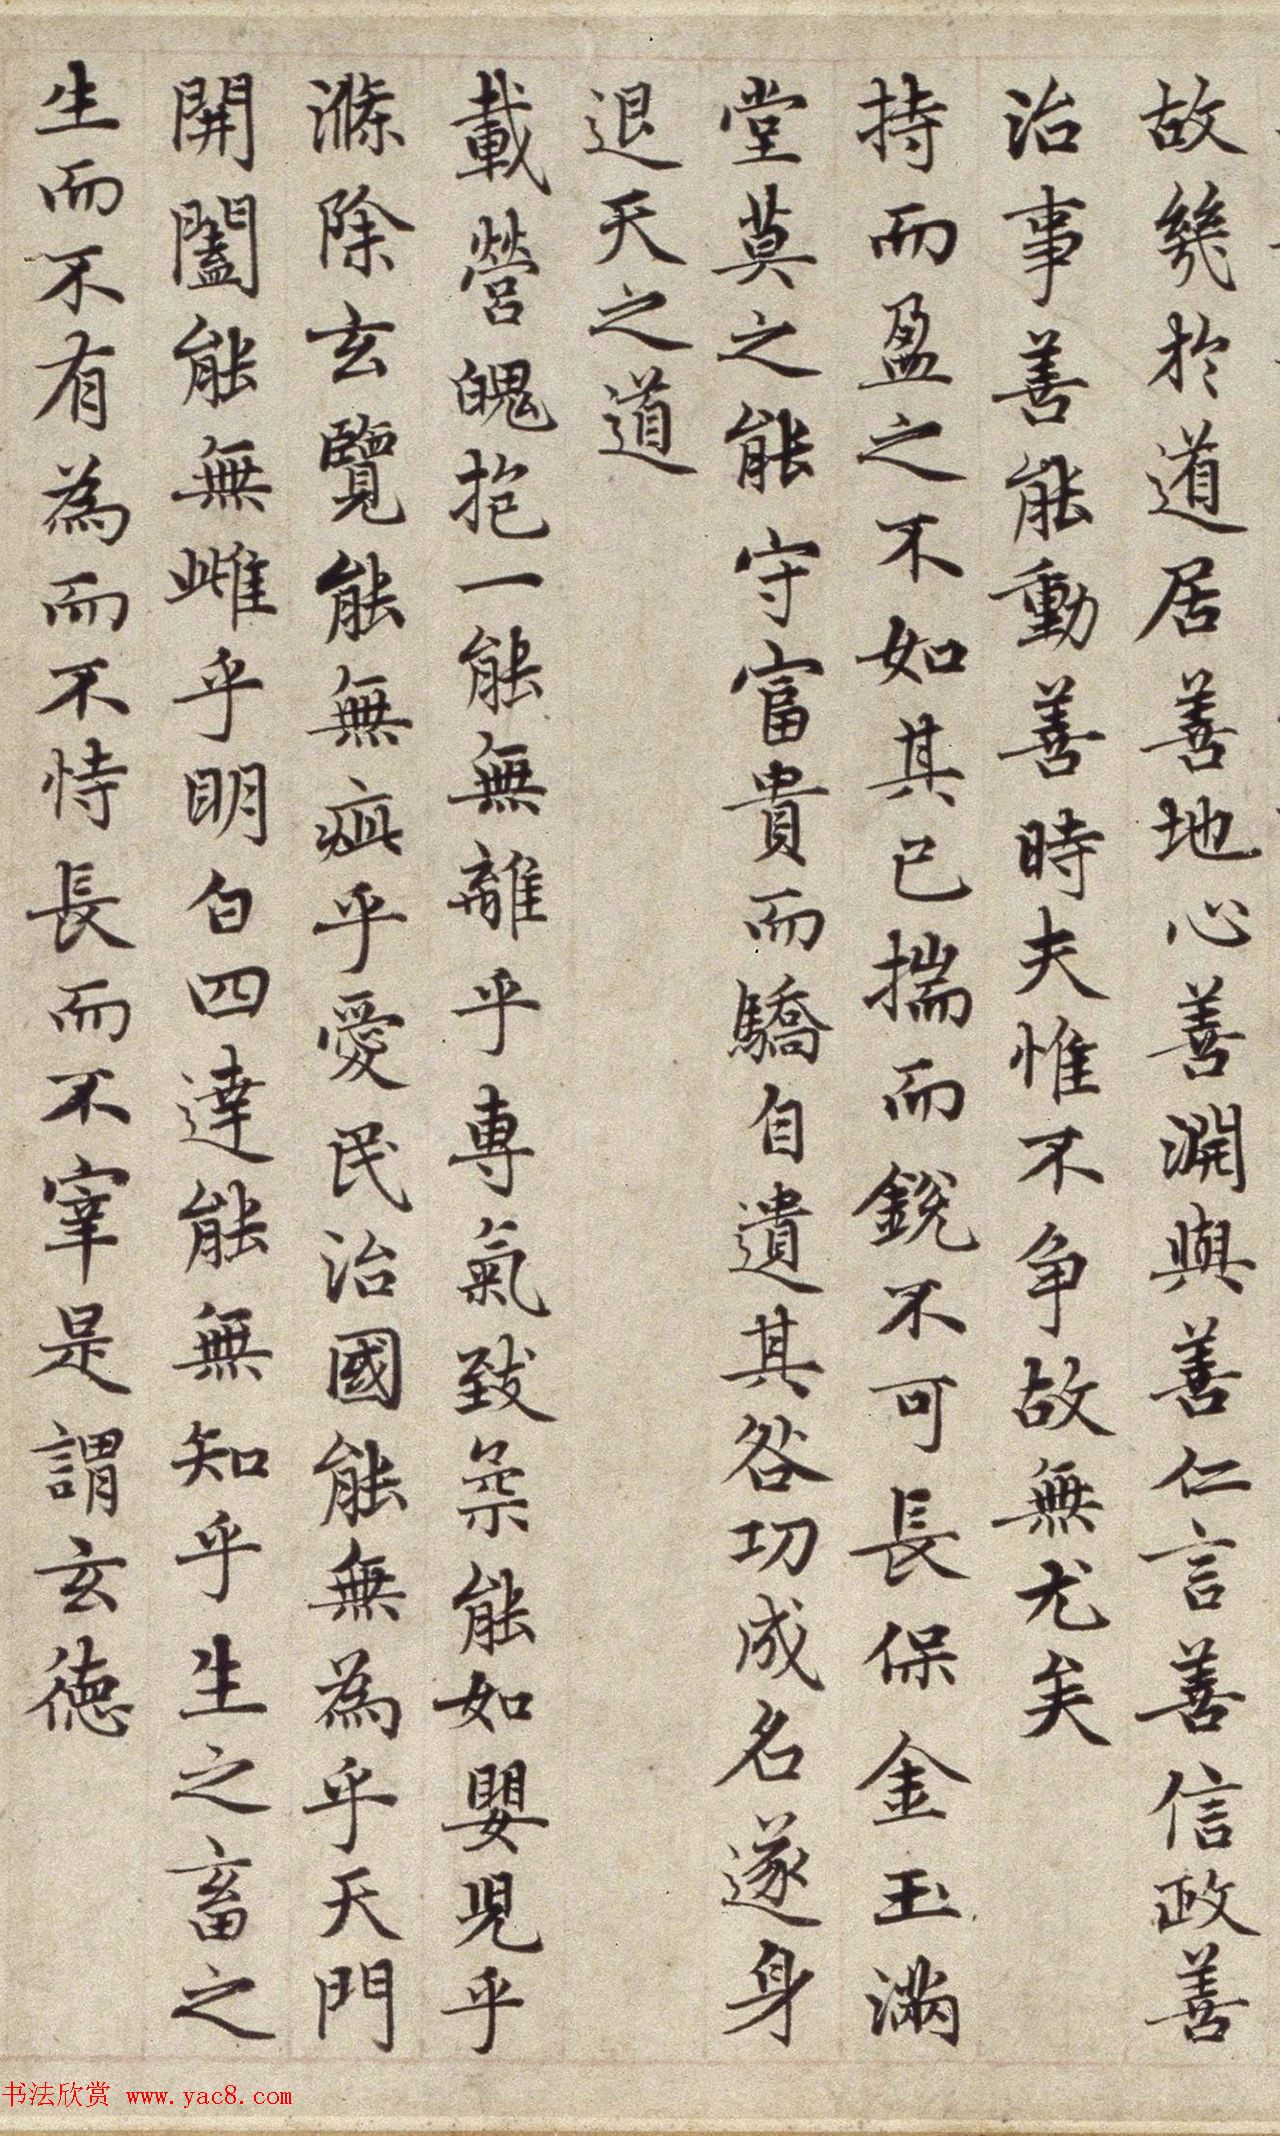 故幾於道居善地心善淵與善仁言善信政善
治事善能動善時夫惟不争故無尤矣
持而盈之不如其已揣而銳不可長保金玉滿
堂莫之能守富貴而驕自遺其咎功成名遂身
退天之道
載營魄抱一能無離乎專氣致柔能如嬰兒乎
滌除玄覽能無疵乎愛民治國能無為乎天門
開闔能無雌乎明白四達能無知乎生之畜之
生而不有為而不恃長而不宰是謂玄德
书法欣赏 www.yac8.com